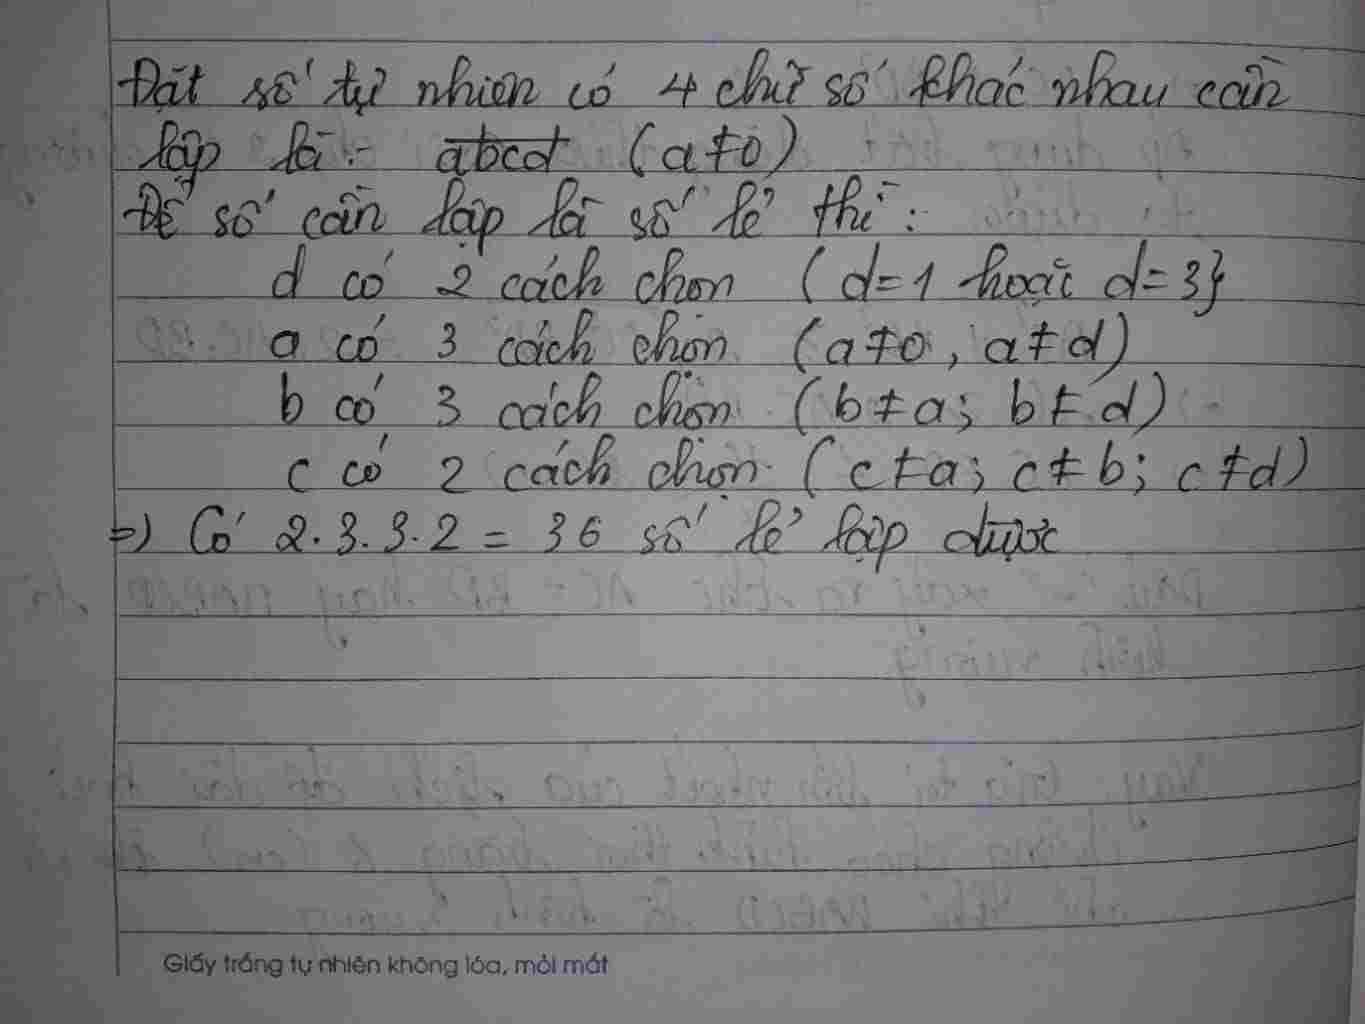 Đặt số tự nhiên có 4 chữ số khác nhau cần
lập là: abcd (a≠0)
Để số cần lập là số lẻ thì:
d có 2 cách chọn (d=1 hoặc d=3}
a có 3 cách chọn (a≠0, a≠d)
b có 3 cách chọn (b≠a; b≠d)
c có 2 cách chọn (c≠a; c≠b; c≠d)
=) Có 2.3.3.2 = 36 số lẻ lập được
Giấy trắng tự nhiên không lóa, mỏi mắt